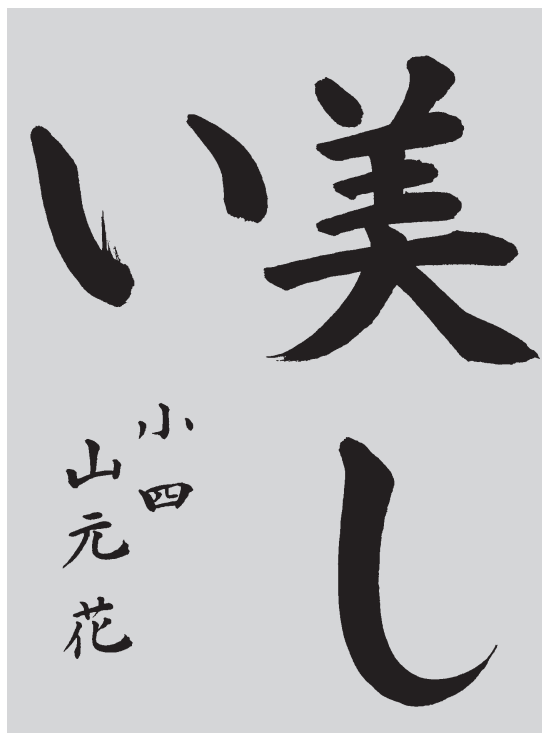 美し
い
小四
山元花